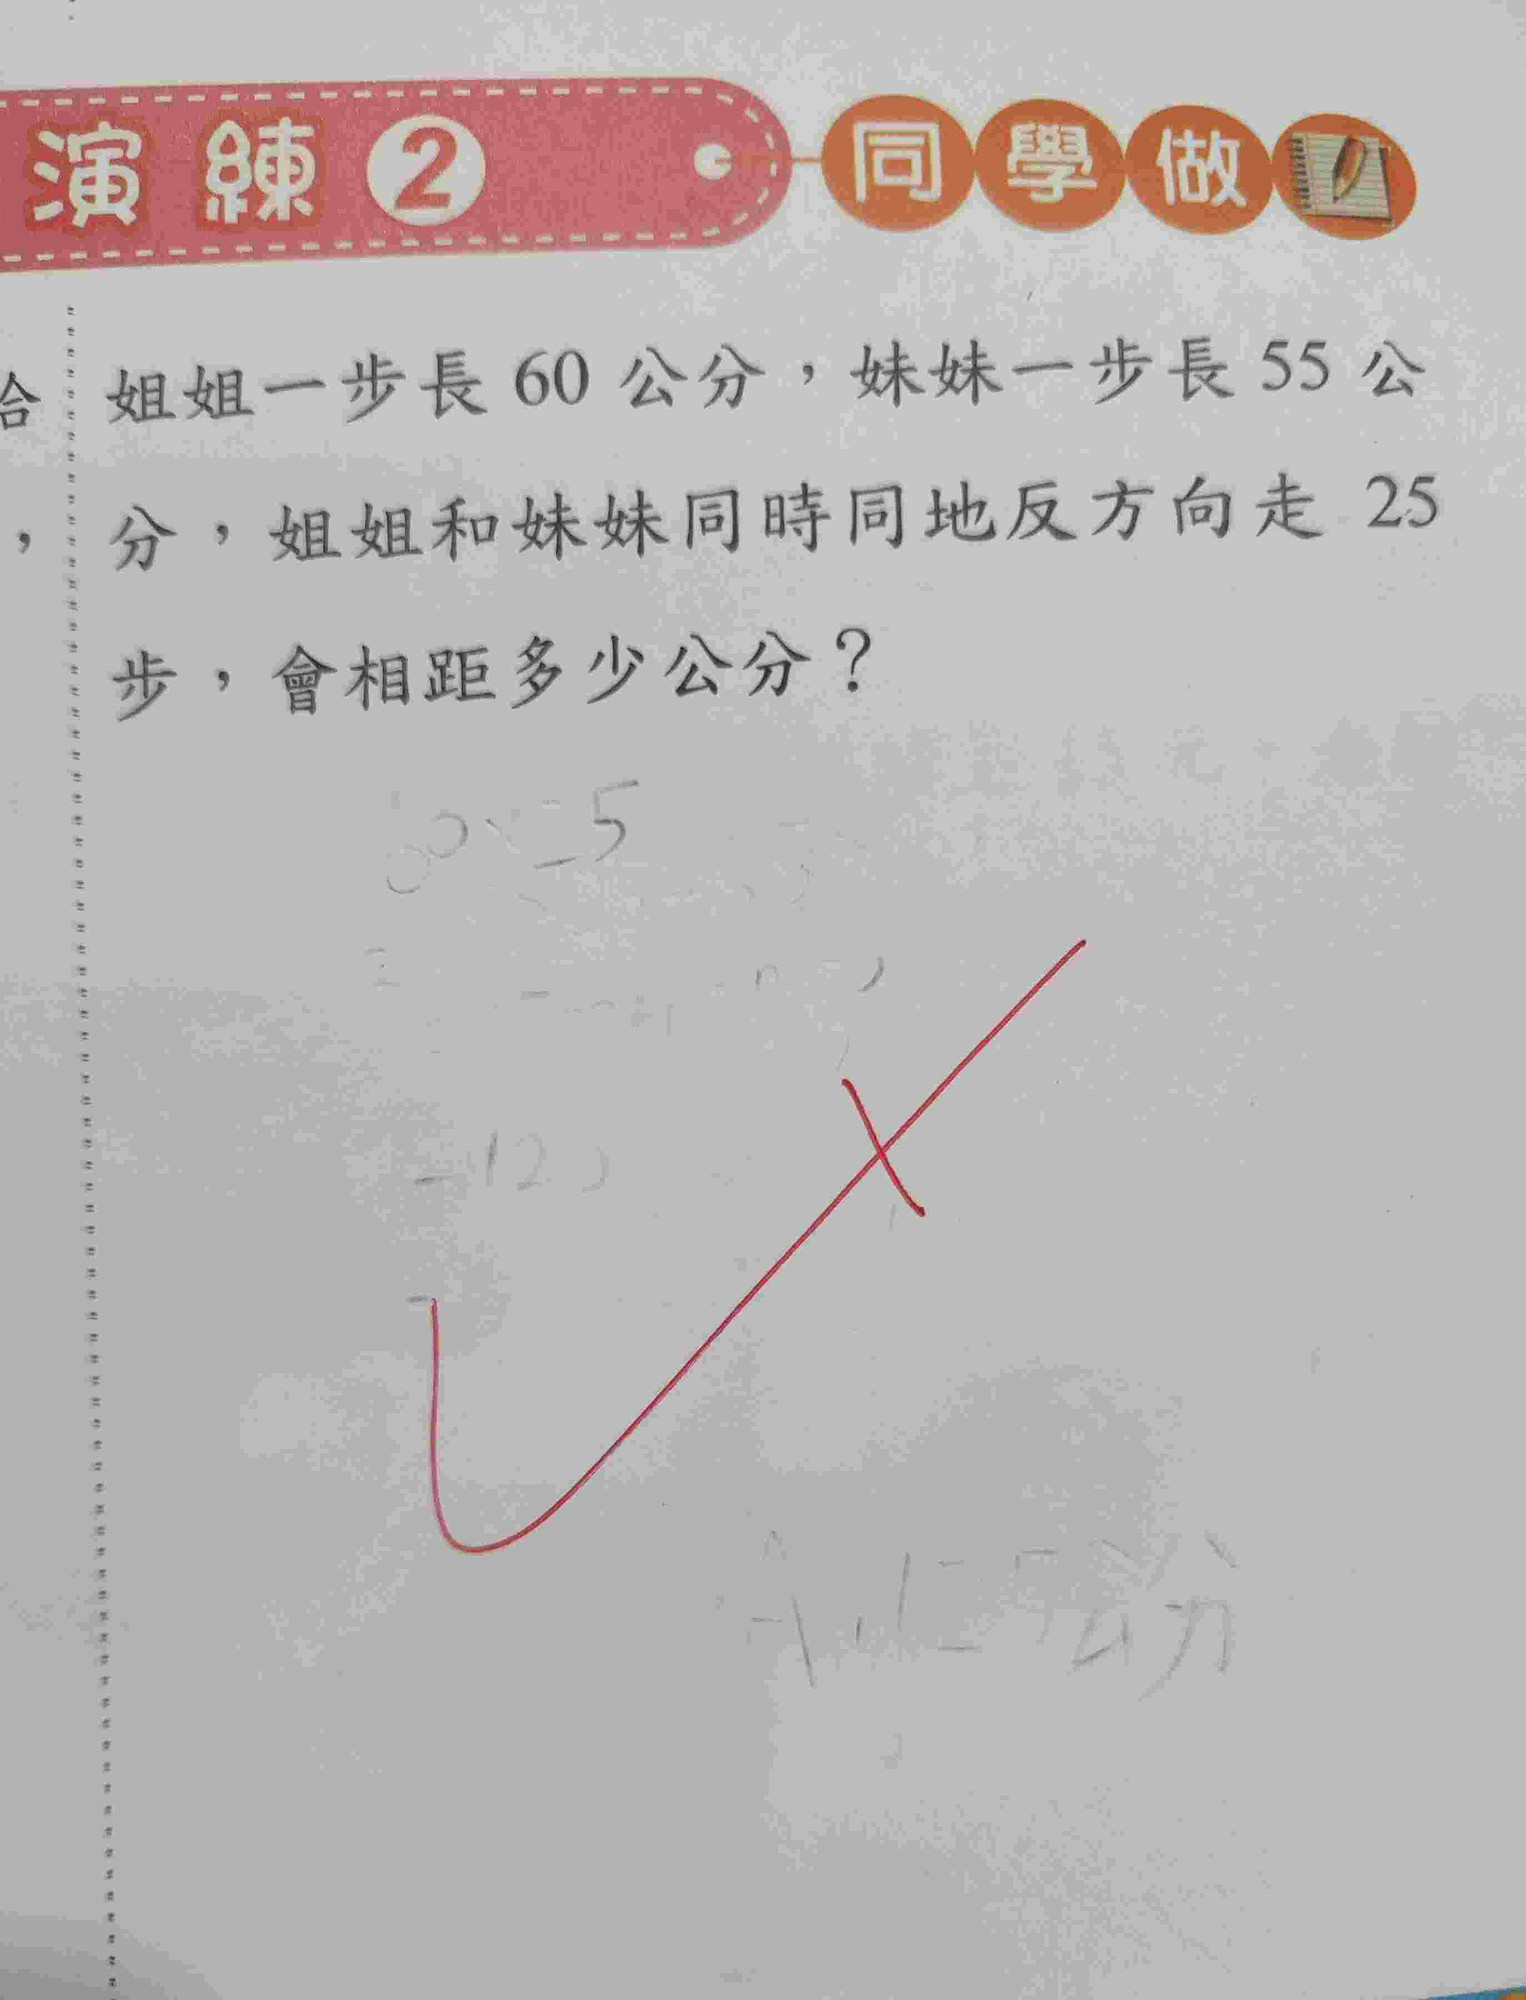 演練2 同學做
姐姐一步長 60 公分，妹妹一步長 55 公
分，姐姐和妹妹同時同地反方向走 25
步，會相距多少公分？
公分